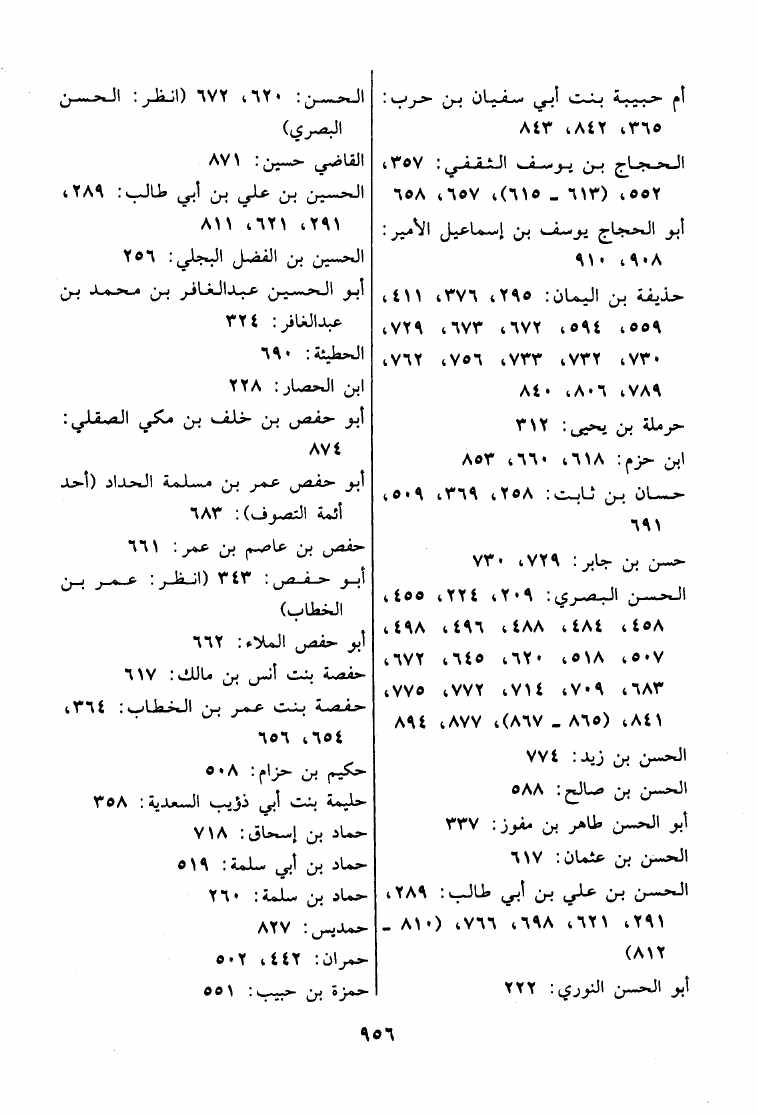 أم حبيبة بنت أبي سفيان بن حرب:
٣٦٥، ٨٤٢، ٨٤٣
الحجاج بن يوسف الثقفي: ٣٥٧،
٥٥٢، (٦١٣ ـ ٦١٥)، ٦٥٧، ٦٥٨
أبو الحجاج يوسف بن إسماعيل الأمير:
٩٠٨، ٩١٠
حذيفة بن اليمان: ٢٩٥، ٣٧٦، ٤١١،
٥٥٩، ٥٩٤، ٦٧٢، ٦٧٣، ٧٢٩،
٧٣٠، ٧٣٢، ٧٣٣، ٧٥٦، ٧٦٢،
٧٨٩، ٨٠٦، ٨٤٠
حرملة بن يحيى: ٣١٢
ابن حزم: ٦١٨، ٦٦٠، ٨٥٣
حسان بن ثابت: ٢٥٨، ٣٦٩، ٥٠٩،
٦٩١
حسن بن جابر: ٧٢٩، ٧٣٠
الحسن البصري: ٢٠٩، ٢٢٤، ٤٥٥،
٤٥٨، ٤٨٤، ٤٨٨، ٤٩٦، ٤٩٨،
٥٠٧، ٥١٨، ٦٢٠، ٦٤٥، ٦٧٢،
٦٨٣، ٧٠٩، ٧١٤، ٧٧٢، ٧٧٥،
٨٤١، (٨٦٥ ـ ٨٦٧)، ٨٧٧، ٨٩٤
الحسن بن زيد: ٧٧٤
الحسن بن صالح: ٥٨٨
أبو الحسن طاهر بن مفوز: ٣٣٧
الحسن بن عثمان: ٦١٧
الحسن بن علي بن أبي طالب: ٢٨٩،
٢٩١، ٦٢١، ٦٩٨، ٧٦٦، (٨١٠ ـ
٨١٢)
أبو الحسن النوري: ٢٢٢
الحسن: ٦٢٠، ٦٧٢ (انظر: الحسن
البصري)
القاضي حسين: ٨٧١
الحسين بن علي بن أبي طالب: ٢٨٩،
٢٩١، ٦٢١، ٨١١
الحسين بن الفضل البجلي: ٢٥٦
أبو الحسين عبدالغافر بن محمد بن
عبدالغافر: ٣٢٤
الحطيئة: ٦٩٠
ابن الحصار: ٢٢٨
أبو حفص بن خلف بن مكي الصقلي:
٨٧٤
أبو حفص عمر بن مسلمة الحداد (أحد
أئمة التصوف): ٦٨٣
حفص بن عاصم بن عمر: ٦٦١
أبو حفص: ٣٤٣ (انظر: عمر بن
الخطاب)
أبو حفص الملاء: ٦٦٢
حفصة بنت أنس بن مالك: ٦١٧
حفصة بنت عمر بن الخطاب: ٣٦٤،
٦٥٤، ٦٥٦
حكيم بن حزام: ٥٠٨
حليمة بنت أبي ذؤيب السعدية: ٣٥٨
حماد بن إسحاق: ٧١٨
حماد بن أبي سلمة: ٥١٩
حماد بن سلمة: ٢٦٠
حمديس: ٨٢٧
حمران: ٤٤٢، ٥٠٢
حمزة بن حبيب: ٥٥١
٩٥٦